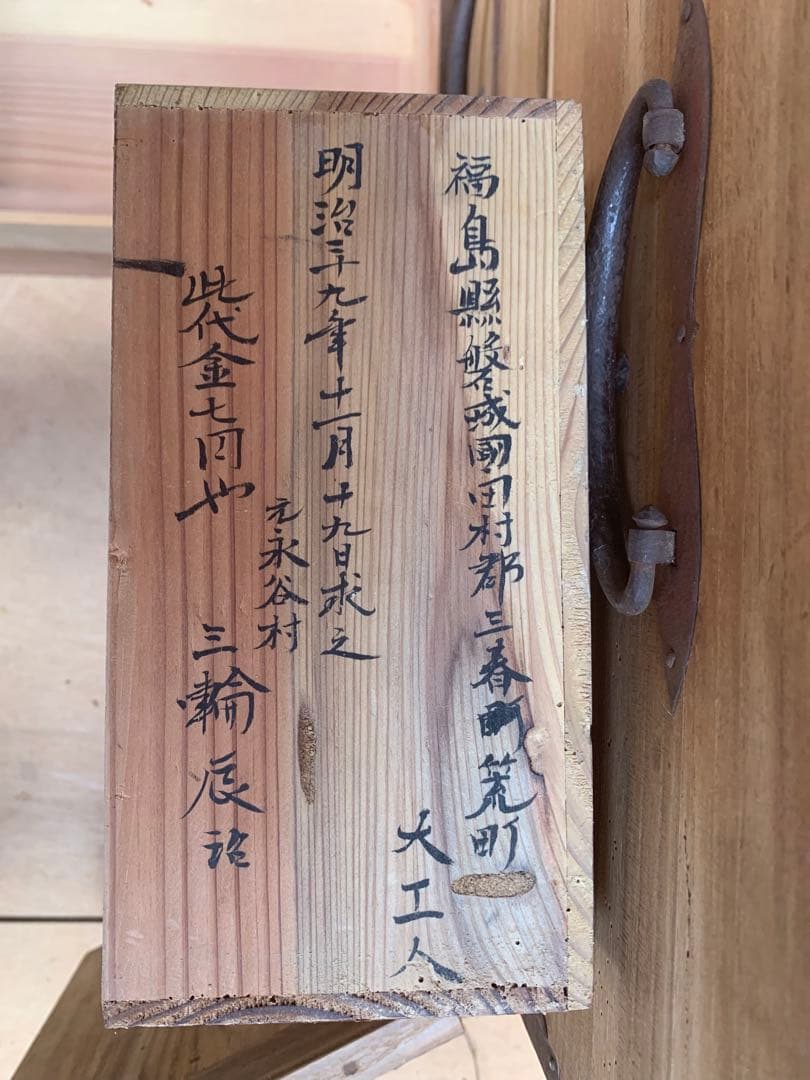 福島縣磐城國田村郡三春町荒町
大工人
明治三十九年十一月十九日求之
元永谷村
一此代金七円也
三輪辰治